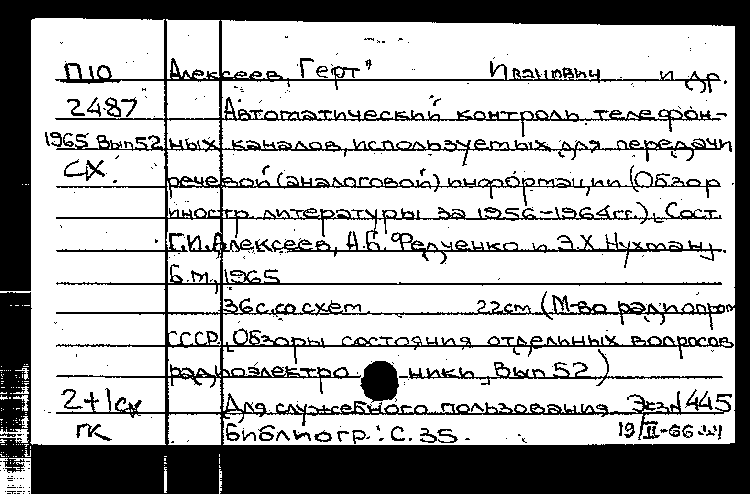 П10 Алексеев, Герт Иванович и др.
2487 Автоматический контроль телефон-
1965 Вып 52 ных каналов, используемых для передачи
СХ. речевой (аналоговой) информации (Обзор
иностр литературы за 1956-1964гг.). Сост.
Г.И.Алексеев, А.Б. Федченко и Э.Х Нухман.
Б.м, 1965
36с. со схем. 22см (М-во радиопром
СССР. Обзоры состояния отдельных вопросов
радиоэлектро ники, Вып 52)
2+1сх Для служебного пользования Экз№445
ГК Библиогр.: С. 35. 19/II-66